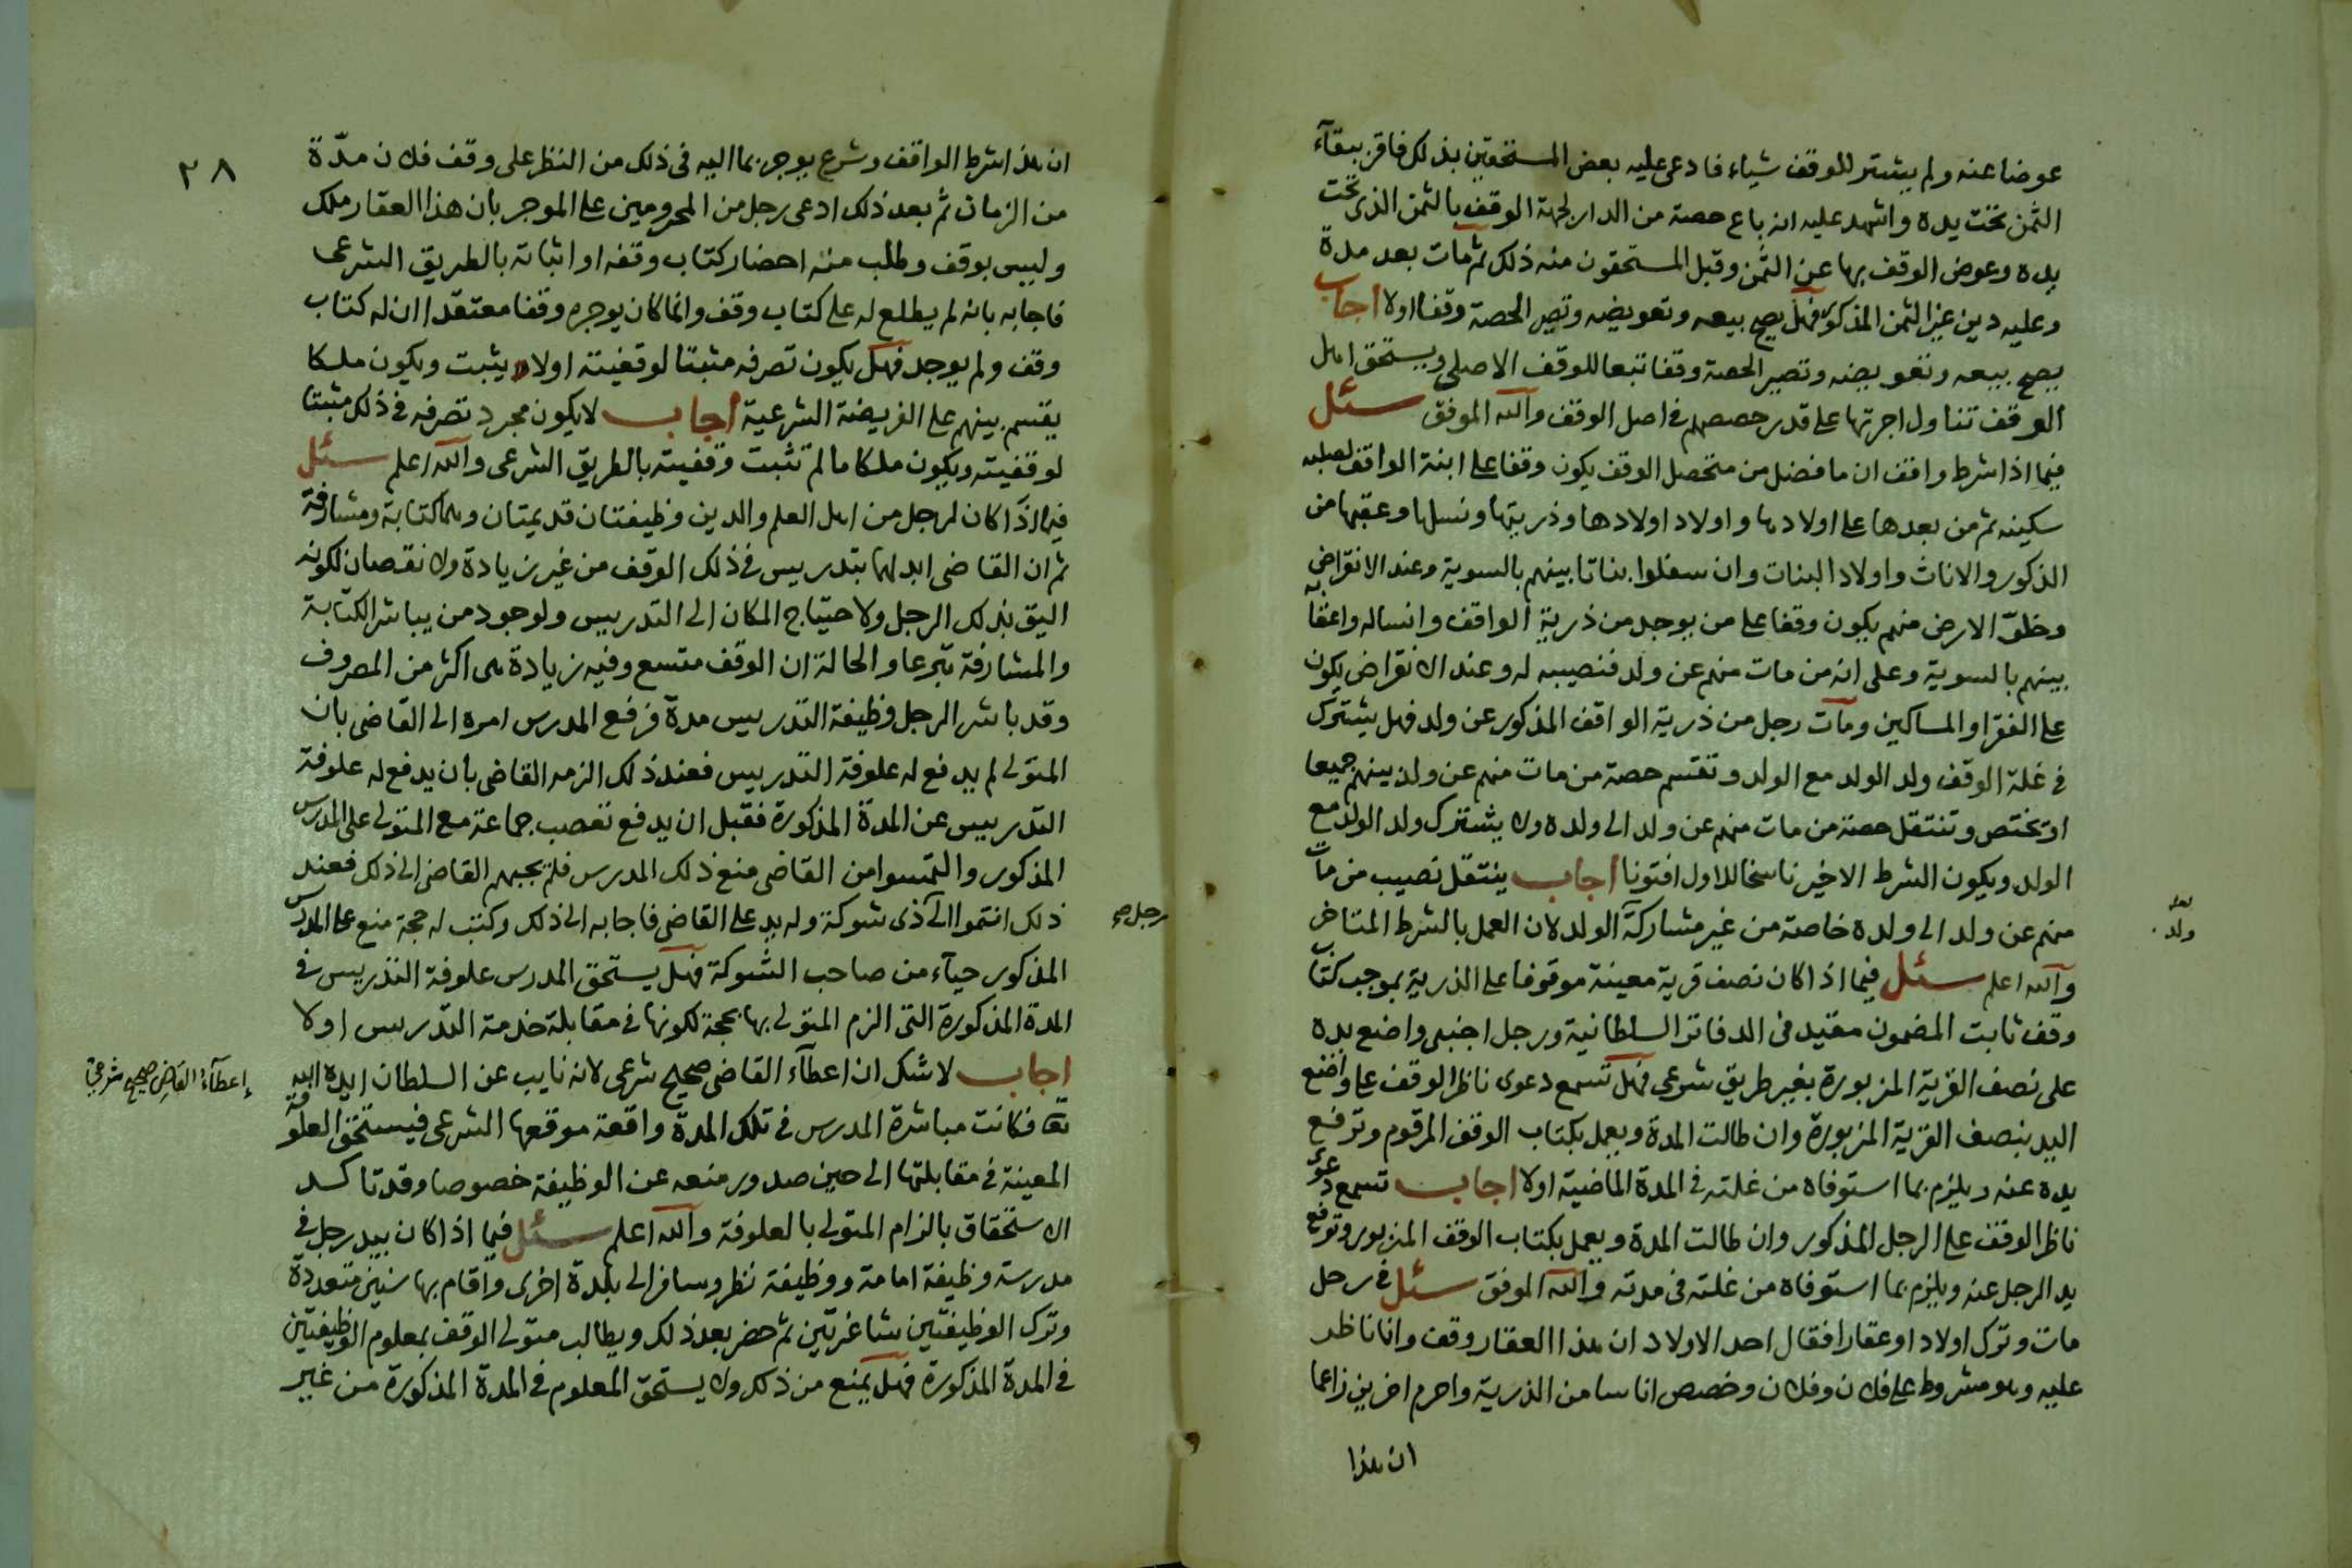 عوضا عنه ولم يشتر للوقف شياء فادعى عليه بعض المستحقين بذلك فاقر ببقآء
الثمن تحت يده واشهد عليه انه باع حصة من الدار لجهة الوقف بالثمن الذى تحت
يده وعوض الوقف بها عن الثمن وقبل المستحقون منه ذلك ثم مات بعد مدة
وعليه دين غير الثمن المذكور فهل يصح بيعه وتعويضه وتصير الحصة وقفا اولا اجاب
يصح بيعه وتعويضه وتصير الحصة وقفا تبعا للوقف الاصلى ويستحق اهل
الوقف تناول اجرتها على قدر حصصهم فى اصل الوقف والله الموفق سئل
فيما اذا شرط واقف ان ما فضل من متحصل الوقف يكون وقفا على ابنة الواقف لصلبه
سكينه ثم من بعدها على اولادها واولاد اولادها وذريتها ونسلها وعقبها من
الذكور والاناث واولاد البنات وان سفلوا بناتا بينهم بالسوية وعند الانقراض
وخلوّ الارض منهم يكون وقفا على من يوجد من ذرية الواقف وانساله واعقابه
بينهم بالسوية وعلى انه من مات منهم عن ولد فنصيبه له وعند الانقراض يكون
على الفقرا والمساكين ومات رجل من ذرية الواقف المذكور عن ولد فهل يشترك
فى غلة الوقف ولد الولد مع الولد وتقسم حصة من مات منهم عن ولد بينهم جميعا
او تختص وتنتقل حصة من مات منهم عن ولد الى ولده ولا يشترك ولد الولد مع
الولد ويكون الشرط الاخير ناسخا للاول افتونا اجاب ينتقل نصيب من مات
منهم عن ولد الى ولده خاصة من غير مشاركة الولد لان العمل بالشرط المتاخر
ولد
والله اعلم سئل فيما اذا كان نصف قرية معينة موقوفا على الذرية بموجب كتاب
وقف ثابت المضمون مقيد فى الدفاتر السلطانية ورجل اجنبى واضع يده
على نصف القرية المزبورة بغير طريق شرعى فهل تسمع دعوى ناظر الوقف على واضع
اليد بنصف القرية المزبورة وان طالت المدة ويعمل بكتاب الوقف المرقوم وترفع
يده عنه ويلزم بما استوفاه من غلته فى المدة الماضية اولا اجاب تسمع دعوى
ناظر الوقف على الرجل المذكور وان طالت المدة ويعمل بكتاب الوقف المزبور وترفع
يد الرجل عنه ويلزم بما استوفاه من غلته فى مدته والله الموفق سئل فى رجل
مات وترك اولادا وعقارا فقال احد الاولاد ان هذا العقار وقف وانا ناظر
عليه وهو مشروط على فلان وفلان وخصص اناسا من الذرية واحرم اخرين زاعما
ان هذا
٢٨
ان هذا شرط الواقف وشرع يوجر بما اليه فى ذلك من النظر على وقف فلان مدّة
من الزمان ثم بعد ذلك ادعى رجل من المحرومين على الموجر بان هذا العقار ملك
وليس بوقف وطلب منه احضار كتاب وقفه او اثباته بالطريق الشرعى
فاجابه بانه لم يطلع له على كتاب وقف وانما كان يوجره وقفا معتقدا ان له كتاب
وقف ولم يوجد فهل يكون تصرفه مثبتا لوقفيته اولا يثبت ويكون ملكا
يقسم بينهم على الفريضة الشرعية اجاب لا يكون مجرد تصرفه فى ذلك مثبتا
لوقفيته ويكون ملكا ما لم تثبت وقفيته بالطريق الشرعى والله اعلم سئل
فيما اذا كان لرجل من اهل العلم والدين وظيفتان قديمتان وهما كتابة ومشارفة
ثم ان القاضى ابدلهما بتدريس فى ذلك الوقف من غير زيادة ولا نقصان لكونه
اليق بذلك الرجل ولاحتياج المكان الى التدريس ولوجود من يباشر الكتابة
والمشارفة تبرعا والحالة ان الوقف متسع وفيه زيادة هى اكثر من المصروف
وقد باشر الرجل وظيفة التدريس مدة فرفع المدرس امره الى القاضى بان
المتولى لم يدفع له علوفة التدريس فعند ذلك الزمه القاضى بان يدفع له علوفة
التدريس عن المدة المذكورة فقبل ان يدفع تعصب جماعة مع المتولى على المدرس
المذكور والتمسوا من القاضى منع ذلك المدرس فلم يجبهم القاضى الى ذلك فعند
ذلك انتموا الى ذى شوكة وله يد على القاضى فاجابه الى ذلك وكتب له حجة منع على المدرس
رجل صح
المذكور حيآء من صاحب الشوكة فهل يستحق المدرس علوفة التدريس فى
المدة المذكورة التى الزم المتولى بها بحجة لكونها فى مقابلة خدمة التدريس اولا
اجاب لا شك ان اعطآء القاضى صحيح شرعى لانه نايب عن السلطان ايده الله
إعطآء القاضى صحيح شرعى
تعا فكانت مباشرة المدرس فى تلك المدة واقعة موقعها الشرعى فيستحق العلوفة
المعينة فى مقابلتها الى حين صدور منعه عن الوظيفة خصوصا وقد تاكد
الاستحقاق بالزام المتولى بالعلوفة والله اعلم سئل فيما اذا كان بيد رجل فى
مدرسة وظيفة امامة ووظيفة نظر وسافر الى بلدة اخرى واقام بها سنين متعددة
وترك الوظيفتين شاغرتين ثم حضر بعد ذلك ويطالب متولى الوقف بمعلوم الوظيفتين
فى المدة المذكورة فهل يمنع من ذلك ولا يستحق المعلوم فى المدة المذكورة من غير